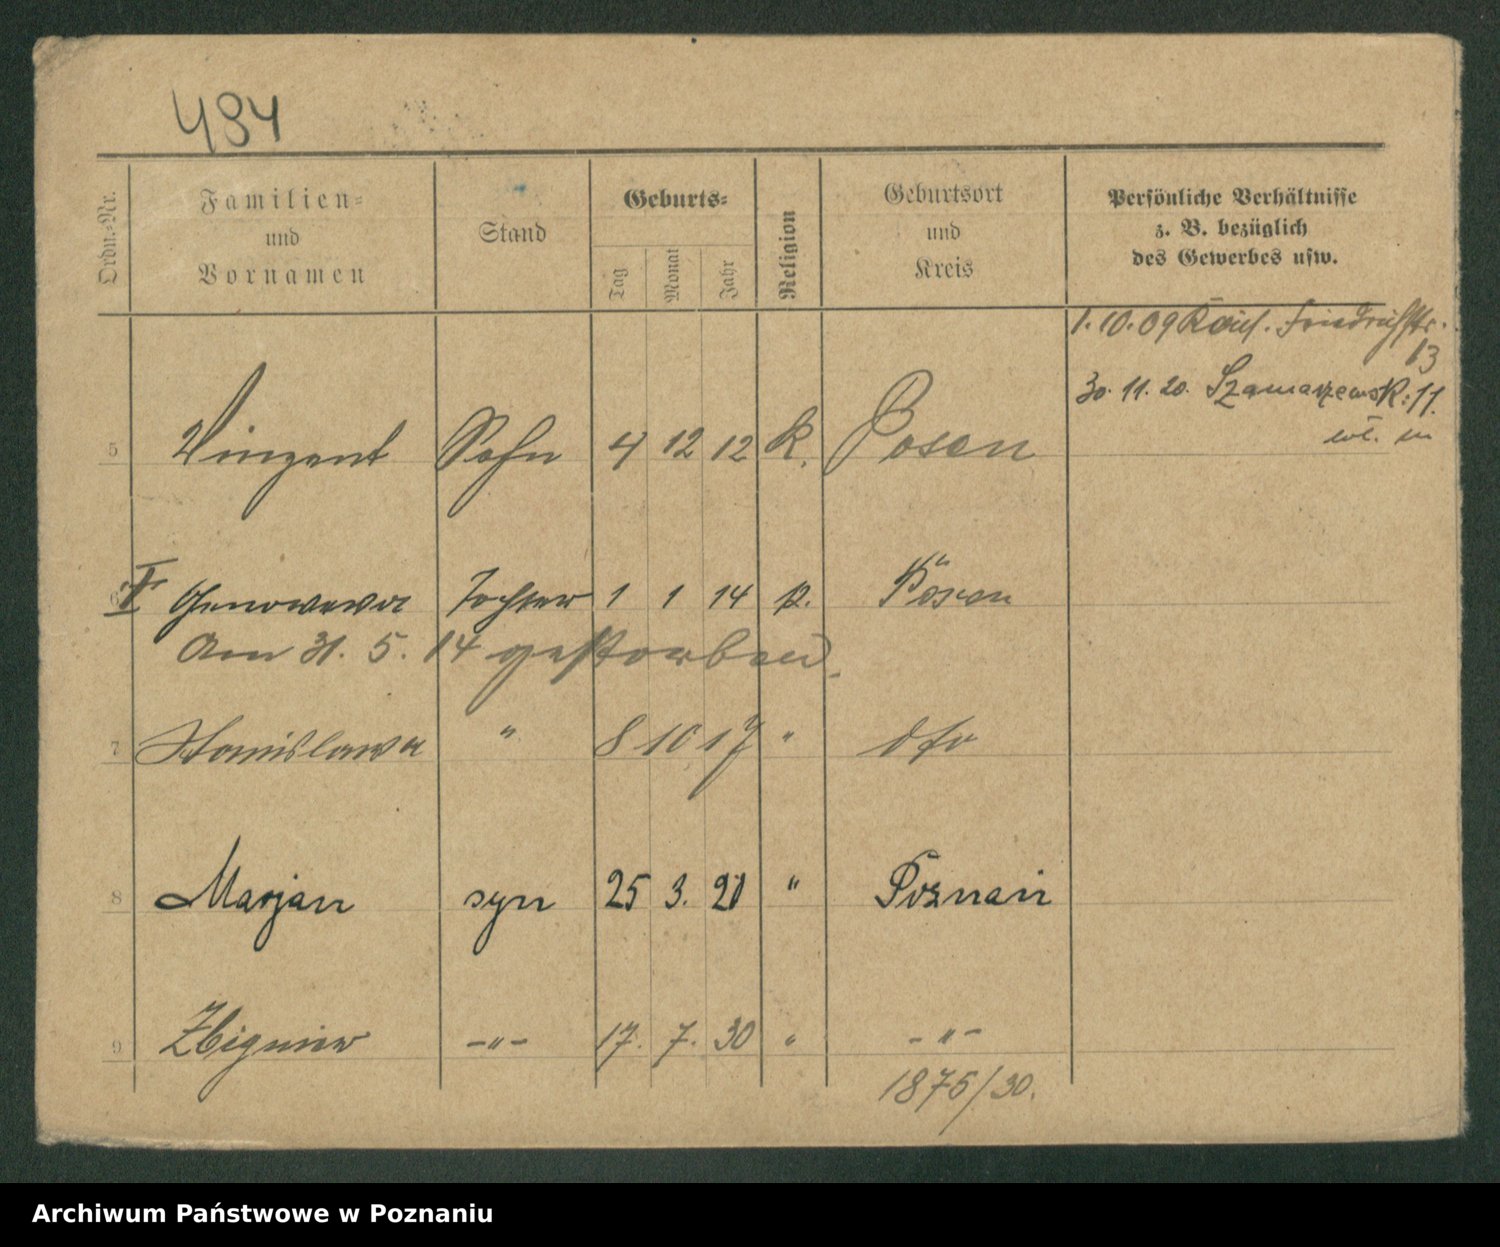 494
Ordn.-Nr.
Familien-
und
Vornamen
Stand
Geburts-
Tag
Monat
Jahr
Religion
Geburtsort
und
Kreis
Persönliche Verhältnisse
z. B. bezüglich
des Gewerbes usw.
1.10.09 Friedrichstr.
13
30. 11. 20. Szamarzewsk: 11.
wł. m
5 Vinzent Sohn 4 12 12 k. Posen
6 Genowewa Tochter 1 1 14 k. Posen
Am 31. 5. 14 gestorben.
7 Stanislawa " 8 10 17 " dto
8 Marjan syn 25 3. 21 " Poznań
9 Zbigniew -"- 17. 7. 30 " -"-
1875/30.
Archiwum Państwowe w Poznaniu